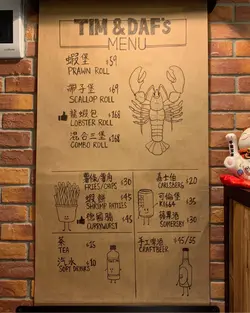 TIM & DAF's
MENU
蝦堡 $59
PRAWN ROLL
帶子堡 $69
SCALLOP ROLL
龍蝦包 $168
LOBSTER ROLL
混合三堡 $268
COMBO ROLL
薯條/薯角 $30
FRIES/CHIPS
蝦餅 $45
SHRIMP PATTIES
德國腸 $45
CURRYWURST
嘉士伯 $20
CARLSBERG
可倫堡 $35
K1664
蘋果酒 $30
SOMERSBY
茶 $25
TEA
汽水 $10
SOFT DRINKS
手工啤酒 $45/55
CRAFTBEER